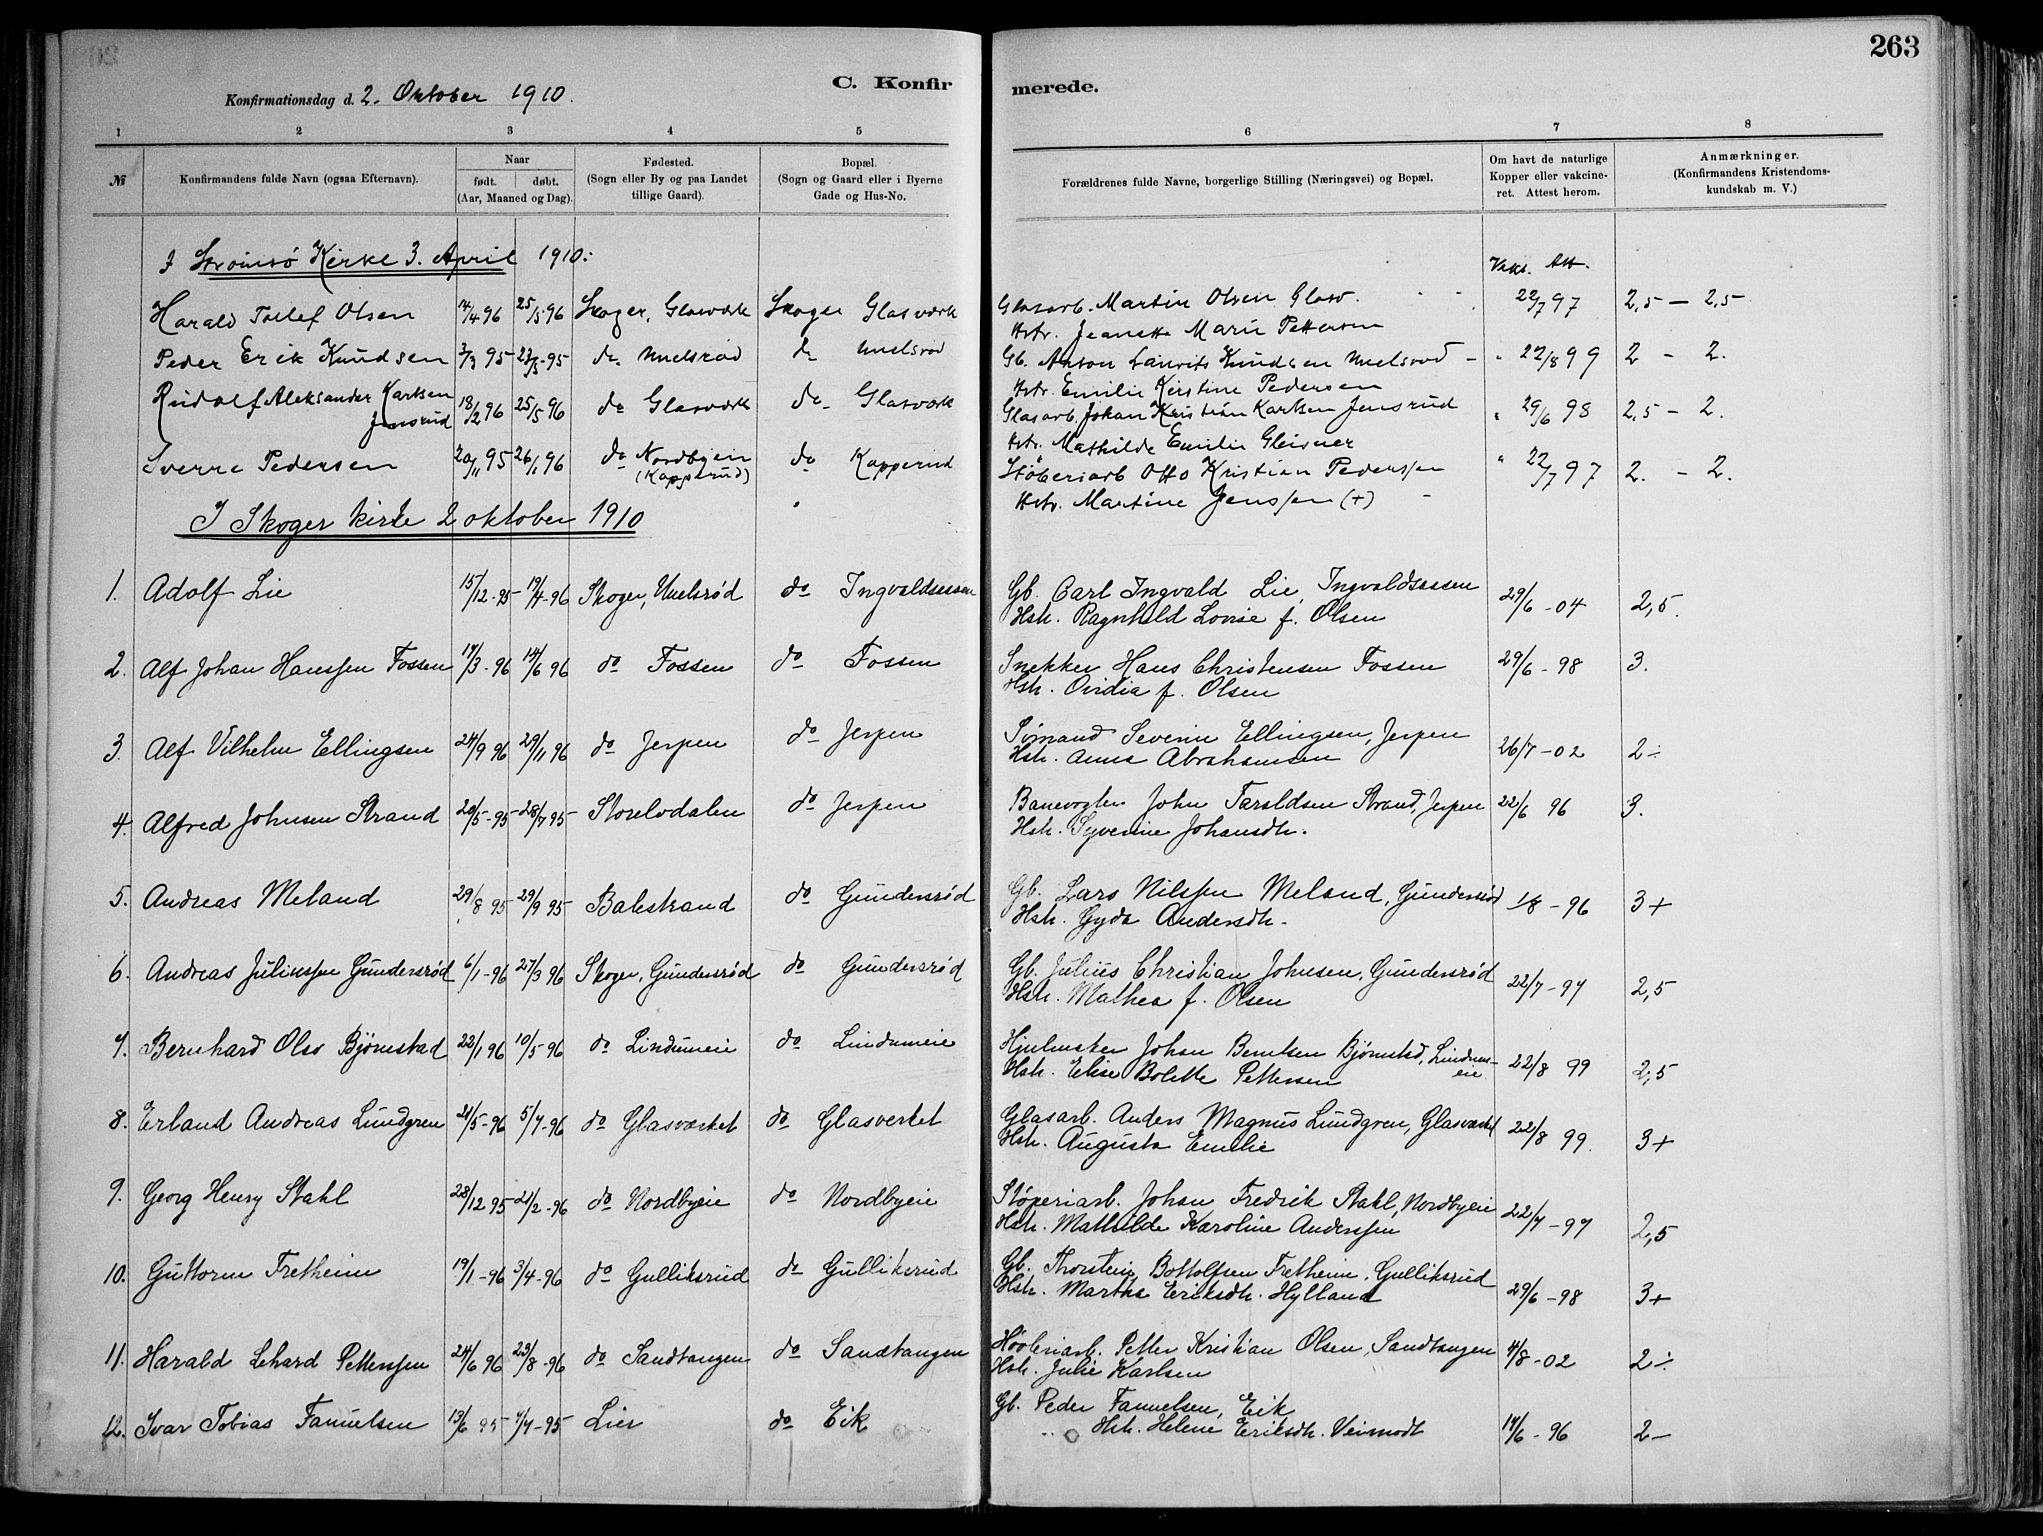 263
C. Konfirmerede.
Konfirmationsdag d. 2. Oktober 1910.
1 2 3 4 5 6 7 8
№ Konfirmandens fulde Navn (ogsaa Efternavn). Naar født. døbt. (Aar, Maaned og Dag). Fødested. (Sogn eller By og paa Landet tillige Gaard). Bopæl. (Sogn og Gaard eller i Byerne Gade og Hus-No. Forældrenes fulde Navne, borgerlige Stilling (Næringsvei) og Bopæl. Om havt de naturlige Kopper eller vakcineret. Attest herom. Anmærkninger. (Konfirmandens Kristendomskundskab m. V.)
I Strømsø Kirke 3. April 1910:
Vaks. Att.
Harald Tollef Olsen 14/4 96 25/5 96 Skoger, Glasværk Skoger Glasværk Glasarb. Martin Olsen Glasv. 22/7 97 2,5 — 2,5
Hstr. Jeanette Marie Pettersen
Peder Erik Knudsen 3/3 95 23/5-95 do Unelsrød do Unelsrød Gb. Anton Laurits Knudsen Unelsrød — " 22/8 99 2 - 2.
Hstr. Emilie Kirstine Pedersen
Rudolf Aleksander Karlsen Jensrud 18/2 96 25/5 96 do Glasværk do Glasværk Glasarb. Johan Kristian Karlsen Jensrud " 29/6 98 2,5 - 2.
Hstr. Mathilde Emilie Gleisner
Sverre Pedersen 20/11 95 26/1 96 do Nordbyeie (Kopperud) do Kopperud Støberiarb Otto Kristian Pederssen " 22/7 97 2. - 2.
Hstr. Martine Jenssen (+)
I Skoger kirke 2 oktober 1910
1. Adolf Lie 15/12-95 19/4-96 Skoger, Unelsrød do Ingvaldsessen Gb. Carl Ingvald Lie, Ingvaldsessen 29/6-04 2,5.
Hstr. Ragnhild Lovise f. Olsen
2. Alf Johan Hanssen Fossen 19/3-96 14/6 96 do Fossen do Fossen Snekker Hans Christensen Fossen 29/6-98 3.
Hstr. Ovidia f. Olsen
3. Alf Vilhelm Ellingsen 24/9 96 29/11 96 do Jerpen do Jerpen Sømand Severin Ellingsen, Jerpen 26/7-02 2÷
Hstr. Anna Abrahamsen
4. Alfred Johnsen Strand 20/5-95 28/7 95 Storelvdalen do Jerpen Banevogter John Taraldsen Strand, Jerpen 22/6 96 3.
Hstr. Syverine Johansdtr.
5. Andreas Meland 29/8 95 29/9 95 Balestrand do Gundersrød Gb. Lars Nilssen Meland, Gundersrød 1/8-96 3+
Hstr. Gyda Andersdtr.
6. Andreas Juliussen Gundersrød 6/1-96 27/3 96 Skoger, Gundersrød do Gundersrød Gb. Julius Christian Johnsen, Gundersrød 22/7-97 2,5
Hstr. Mathea f. Olsen
7. Bernhard Olav Bjørnstad 22/1 96 10/5-96 do Lindumeie do Lindumeie Hjulmaker Johan Berntsen Bjørnstad, Lindumeie 22/8 99 2,5
Hstr. Elise Bolette Pettersen
8. Erland Andreas Lundgren 21/5-96 5/7-96 do Glasværket do Glasverket Glasarb. Anders Magnus Lundgren, Glasværket 22/8 99. 3+
Hstr. Augusta Emelie
9. Georg Henry Stahl 28/12 95 21/2-96 do Nordbyeie do Nordbyeie Støperiarb. Johan Fredrik Stahl, Nordbyeie 22/7-97 2,5
Hstr. Mathilde Karoline Anderssen
10. Guttorm Fretheim 19/1-96 3/4-96 do Gulliksrud do Gulliksrud Gb. Thorstein Bottolfsen Fretheim, Gulliksrud 29/6-98 3+
Hstr. Martha Eriksdtr. Hylland
11. Harald Lehard Petterssen 24/6 96 23/8-96 do Sandtangen do Sandtangen Høvleriarb. Petter Kristian Olsen, Sandtangen 4/8-02 2÷
Hstr. Julie Karlsen
12. Ivar Tobias Fanuelsen 13/6 95 7/7-95 Lier do Eik Gb. Peder Fanuelsen, Eik 17/6-96 2—
Hstr. Helene Eriksdtr. Veimodt